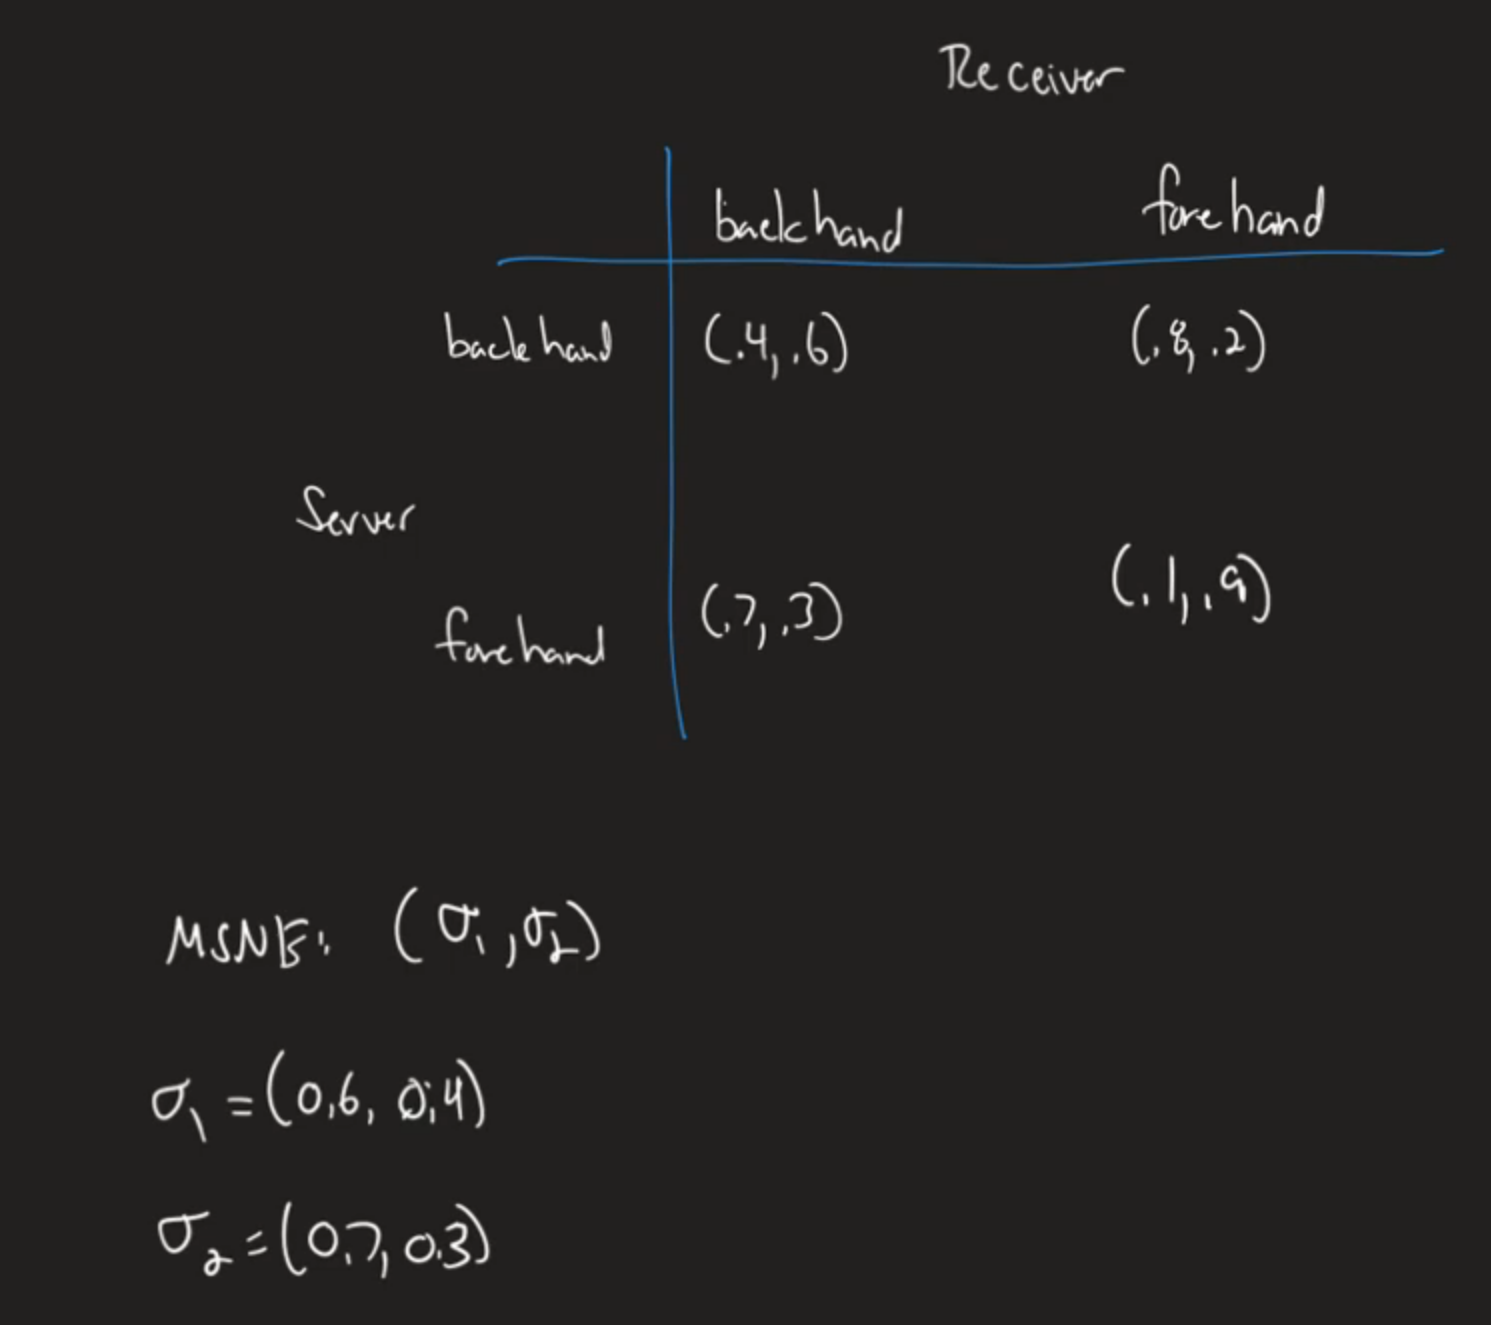 Receiver
backhand forehand
backhand (.4, .6) (.8, .2)
Server
forehand (.7, .3) (.1, .9)
MSNE: (σ₁, σ₂)
σ₁ = (0.6, 0.4)
σ₂ = (0.7, 0.3)